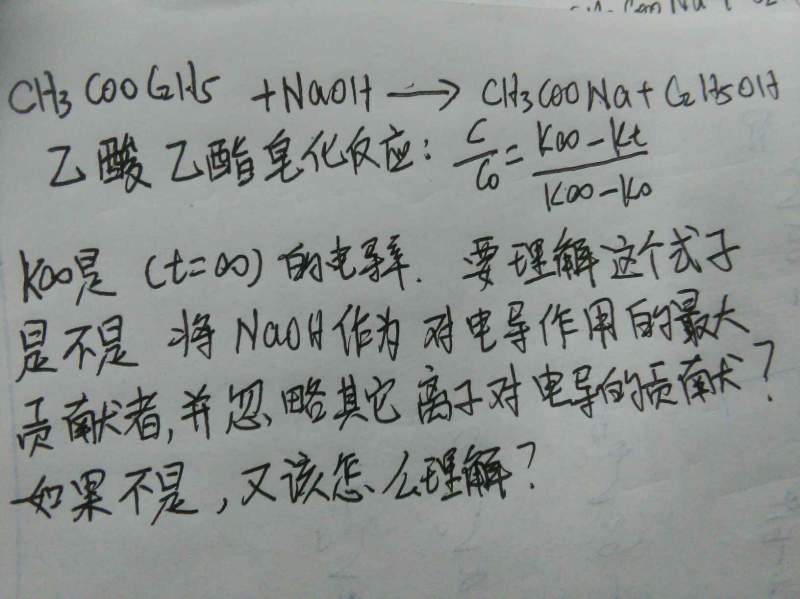 CH3COOC2H5 +NaOH → CH3COONa+C2H5OH
乙酸乙酯皂化反应: C/C0 = K∞-Kt/K∞-K0
K∞是(t=∞)的电导率. 要理解这个式子
是不是 将NaOH作为对电导作用的最大
贡献者,并忽略其它离子对电导的贡献?
如果不是,又该怎么理解?